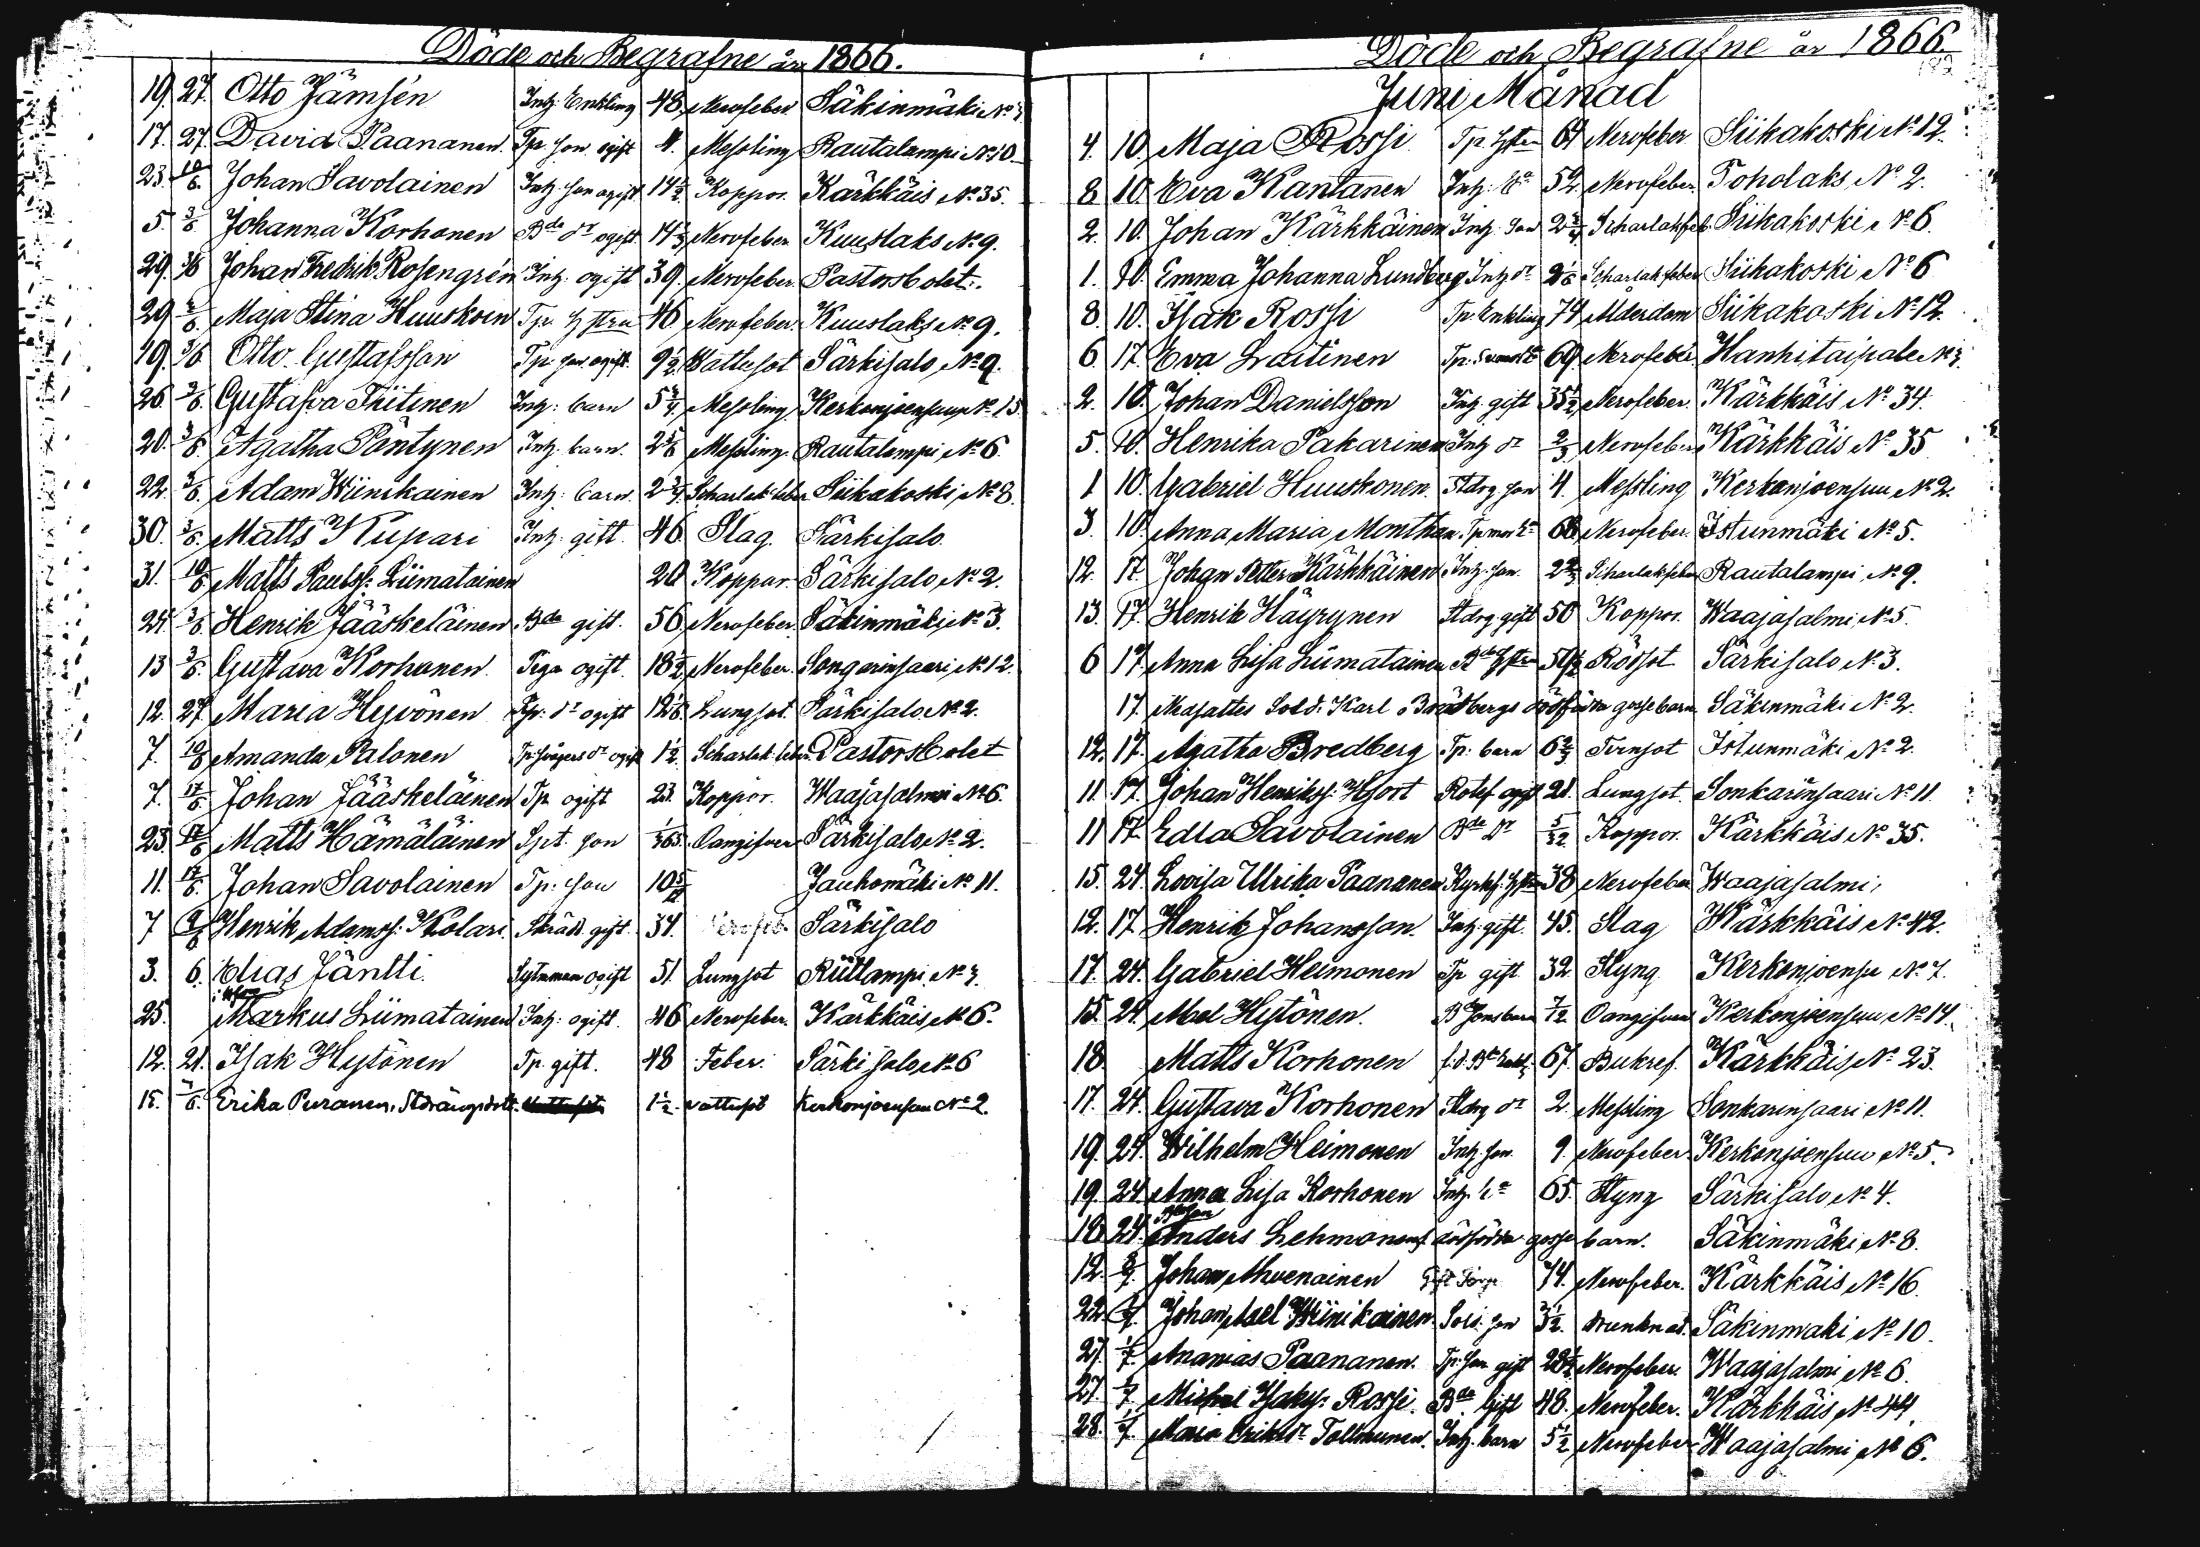 Döde och Begrafne år 1866.
19. 27. Otto Jämsén Inh: Enkling 48 Nervfeber. Säkinmäki No 3
17. 27. David Paananen. Tp. son ogift 4. Messling Rautalampi No 10.
23. 10/6. Johan Savolainen Inh: son ogift 14 1/2 Koppor. Kärkkäis No 35.
5. 3/6 Johanna Korhonen Bde dr ogift. 14 Nervfeber Kuuslaks No 9.
29. 3/6 Johan Fredrik Rosengrén Inh: ogift 39. Nervfeber. Pastorsbolet.
29. 3/6. Maja Stina Huuskoin Tp. hustru 46 Nervfeber. Kuuslaks No 9.
19. 3/6 Otto Gustafsson Tp. son ogift. 9 1/2 Wattusot Särkisalo, No 9.
26. 3/6. Gustafva Tiitinen Inh: barn 5 3/4 Messling Kerkonjoensuu No 15
20. 3/6 Agatha Pöntynen Inh: barn. 2 5/6 Messling. Rautalampi No 6.
22. 3/6. Adam Wiinikainen Inh: barn. 2 3/4 Scharlak feber Siikakoski No 8.
30. 3/6. Matts Kupari Inh: gift. 46 Slag. Särkisalo
31. 10/6 Matts Paulss: Liimatainen 20 Koppor. Särkisalo, No 2.
24. 3/6 Henrik Jääskeläinen Bde gift. 56 Nervfeber. Säkinmäki No 3.
13 3/6. Gustava Korhonen. Piga ogift. 18 1/2 Nervfeber. Songarinsaari No 12
12. 27 Maria Hyvönen Tp: dr ogift 12 1/6 Lungsot. Särkisalo. No 2.
7. 10/6 Amanda Palonen Tp. svågers dr ogift 1 1/2. Scharlak feber Pastorsbolet
7. 17/6 Johan Jääskeläinen Tp ogift 23. Koppor. Waajasalmi No 6.
23. 17/6 Matts Hämäläinen Spt. son 1/365. Oangifven Särkisalo No 2.
11. 17/6. Johan Savolainen Tp: son 10 5/12 Jauhomäki No 11.
7 Henrik Adamss: Kolari. Skräd. gift 34. Nervfeb. Särkisalo
3. 6. Elias Jäntti Sytnman ogift 51 Lungsot Riitlampi No 3.
25. Markus Liimatainen Inh: ogift. 46 Nervfeber. Kärkkäis No 6.
12. 21. Isak Hytönen Tp. gift. 48 Feber. Särkisalo No 6
15. 7/6. Erika Puranen, Stdrängsdott. 1 1/2. vattusot Kerkonjoensuu No 2.
Döde och Begrafne år 1866
Juni Månad
4. 10. Maja Rossi Tp hustru 64 Nervfeber Siikakoski No 12.
8 10. Eva Kantanen Inh: Ea 52 Nervfeber. Toholaks No 2.
2. 10. Johan Kärkkäinen Inh: son 2 3/4 Scharlakfeb. Siikakoski No 6.
1. 10. Emma Johanna Lundberg Inh dr 2 1/6 Scharlakfeber Siikakoski No 6
8. 10. Isak Rossi Tp. Enkling 74 Ålderdom Siikakoski No 12.
6. 17. Eva Laitinen Tp. 69 Nervfeber. Hanhitaipale No 3
2. 10. Johan Danielsson Inh. gift 35 1/2 Nervfeber. Kärkkäis No 34.
5. 10. Henrika Pakarinen Inh dr 2/3 Nervfeber Kärkkäis No 35
1 10. Gabriel Huuskonen. Stdrg son 4. Messling Kerkonjoensuu No 2.
3. 10. Anna Maria Monthen. Nervfeber. Istunmäki No 5.
12. 17. Johan Petter Kärkkäinen Inh. son. 2 2/3 Scharlakfeber Rautalampi No 9.
13. 17. Henrik Häyrynen Stdrg gift 50 Koppor. Waajasalmi, No 5.
6 17. Anna Lisa Liimatainen Bde hustru 51 1/2 Rödsot Särkisalo No 3.
17. Afsattes Sold. Karl Brödbergs dödfödda gossebarn. Säkinmäki No 2.
12. 17. Agatha Bredberg Tp. barn 6 2/3 Tvinsot Istunmäki No 2.
11. 17. Johan Henrikss: Hjort Rotef ogift 21. Lungsot. Sonkarinsaari No 11
11 17. Edla Savolainen Bde Dr 5/12 Koppor. Kärkkäis No 35.
15. 24. Lovisa Ulrika Paananen Kyrkf. hustru 38 Nervfeber Waajasalmi,
12. 17. Henrik Johansson. Inh: gift. 45. Slag Kärkkäis No 42.
17. 24. Gabriel Heimonen Tp gift 32 Styng. Kerkonjoensu No 7.
15. 24. Abel Hytönen. B Sons barn 7/12 Oangifven Kerkonjoensuu No 14.
18. Matts Korhonen f.d. Bde Enkl. 67. Bukref. Kärkkäis No 23.
17. 24. Gustava Korhonen Stdrg dr 2. Messling Sonkarinsaari No 11.
19. 24. Wilhelm Heimonen Inh. son. 9. Nervfeber. Kerkonjoensuu No 5.
19. 24 Anna Lisa Korhonen Inh: Ea 65. Styng Särkisalo No 4.
18 24. Anders Lehmonens dödfödda gossebarn. Säkinmäki No 8.
12. 8/7. Johan Ahvenainen Gift Torp. 74. Nervfeber. Kärkkäis No 16.
22. Johan Axel Wiinikainen. Sold. son 3 1/2. drunknat. Säkinmäki No 10.
27. 1/7. Ananias Paananen. Tp: son gift 28 1/2 Nervfeber. Waajasalmi No 6.
27. 1/7 Michel Isakss: Rossi. Bde. Gift 48. Nervfeber. Kärkkäis No 44.
28. 1/7. Maria Eriksdr Toltunen. Inh. barn 5 1/2 Nervfeber Waajasalmi No 6.